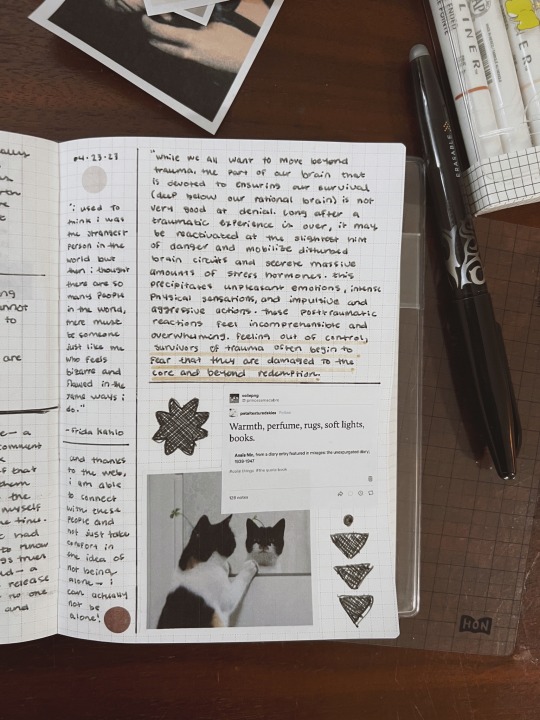 ng
annot
to
are
e— a
comment
f that
them
the
myself
e time.
c had
to know
gs trues
d— a
release
no one
and
04.23.23
"i used to
think i was
the strangest
person in the
world but
then i thought
there are so
many people
in the world,
there must
be someone
just like me
who feels
bizarre and
flawed in the
same ways i
do."
-Frida Kahlo
and thanks
to the web,
i am able
to connect
with these
people and
not just take
comfort in
the idea of
not being
alone — i
can actually
not be
alone!
"while we all want to move beyond
trauma, the part of our brain that
is devoted to ensuring our survival
(deep below our rational brain) is not
very good at denial. Long after a
traumatic experience is over, it may
be reactivated at the slightest hint
of danger and mobilize disturbed
brain circuits and secrete massive
amounts of stress hormones. this
precipitates unpleasant emotions, intense
physical sensations, and impulsive and
aggressive actions. these posttraumatic
reactions feel incomprehensible and
overwhelming. feeling out of control,
survivors of trauma often begin to
fear that they are damaged to the
core and beyond redemption."
petaltexturedskies
Warmth, perfume, rugs, soft lights,
books.
Anaïs Nin, from a diary entry featured in mirages: the unexpurgated diary,
1939-1947
ERASABLE
LINER
HON